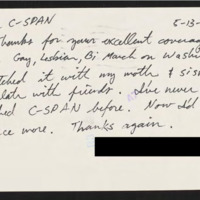 C-SPAN 5-13-
Thanks for your excellent coverag
Gay, Lesbian, Bi March on Washi
tched it with my moth & sis
late with friends. I've never
hed C-SPAN before. Now I'd
ce more. Thanks again.